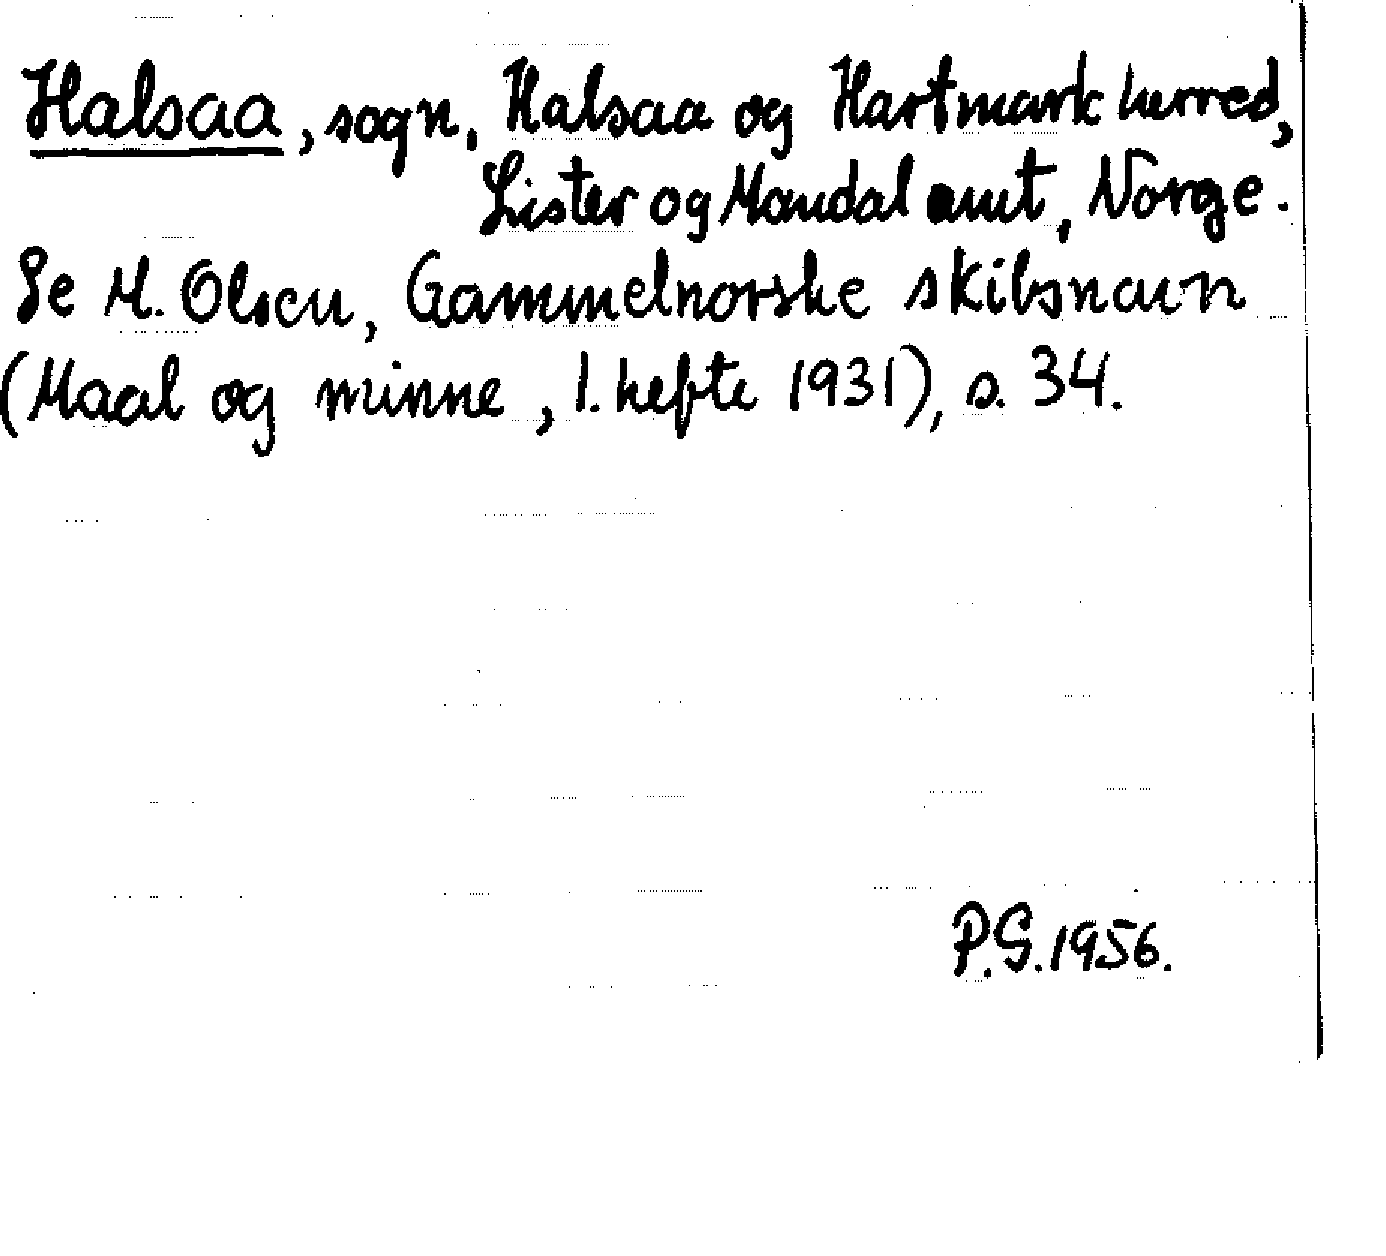 Halsaa, sogn, Halsaa og Hartmark herred,
Lister og Mandal amt, Norge.
Se M. Olsen, Gammelnorske skibsnavn
(Maal og minne, 1. hefte 1931), s. 34.
P.G. 1956.